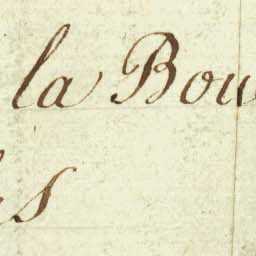 la Bou
s